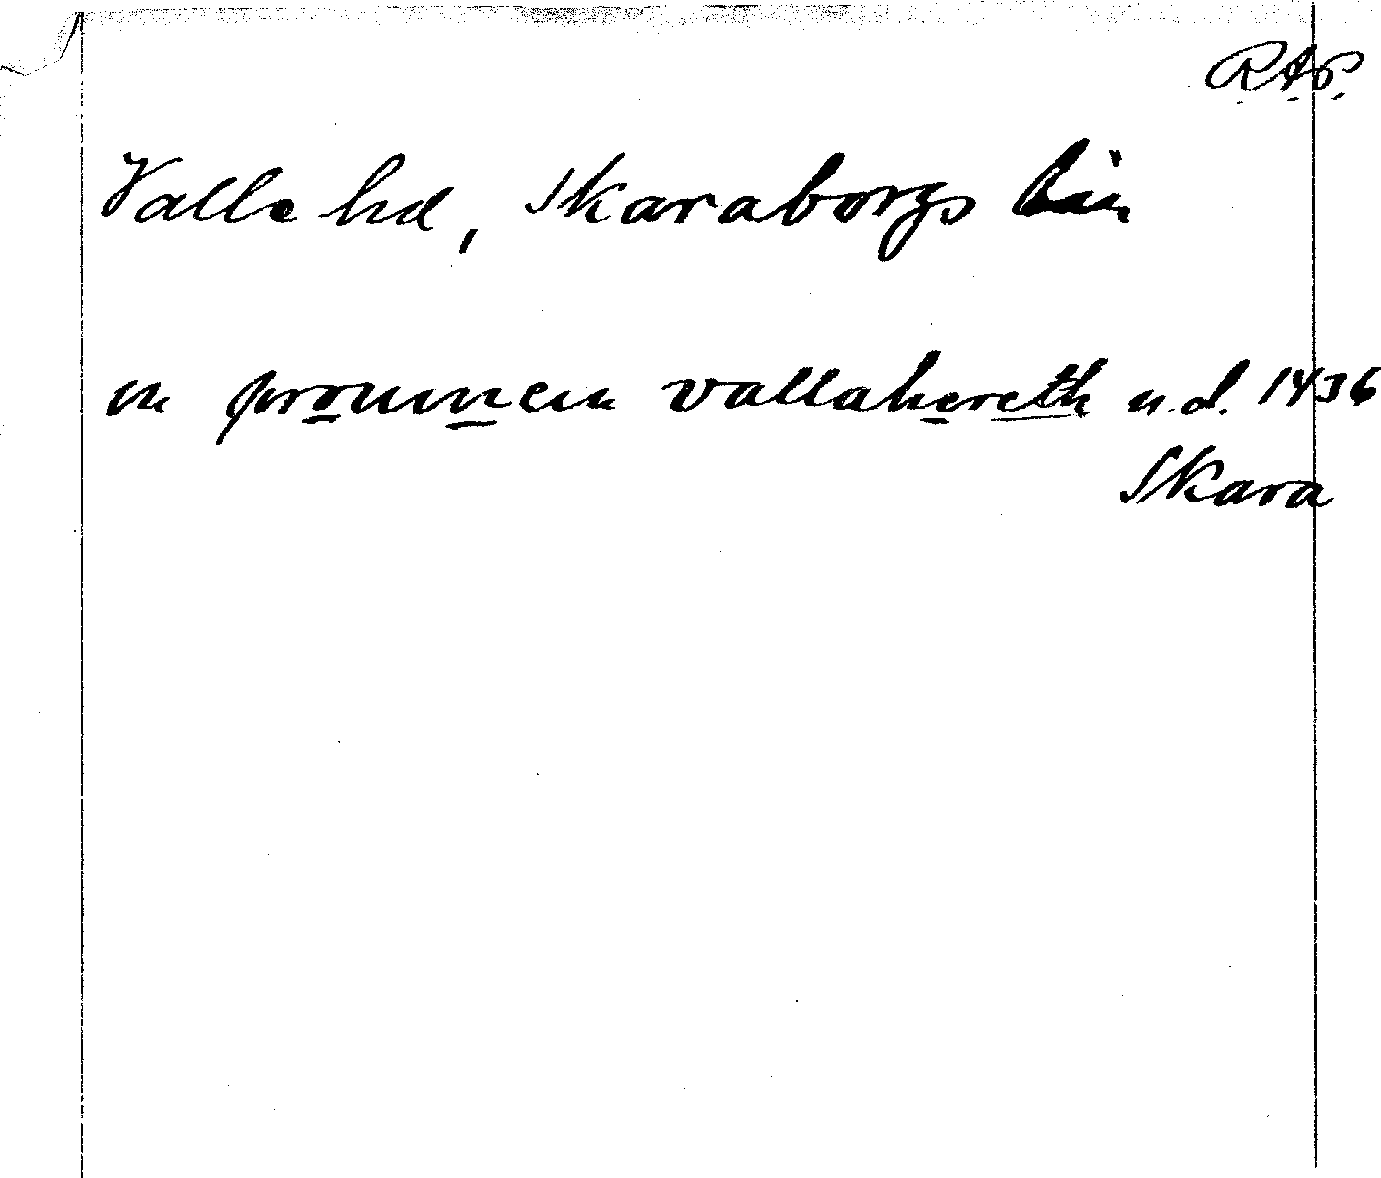 R.A.P.
Valle hd, Skaraborgs län
in prouincia vallahereth u.d. 1436
Skara